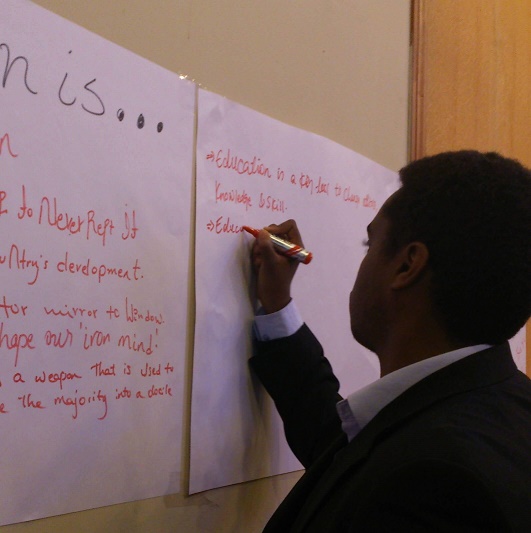 n is...
n
to Never Rept It
untry's development.
tor mirror to Window.
hape our 'iron mind'
a weapon That is Used to
e The majority into a docile
⇒Education is a key tool to change
Knowledge & skill.
⇒Educa